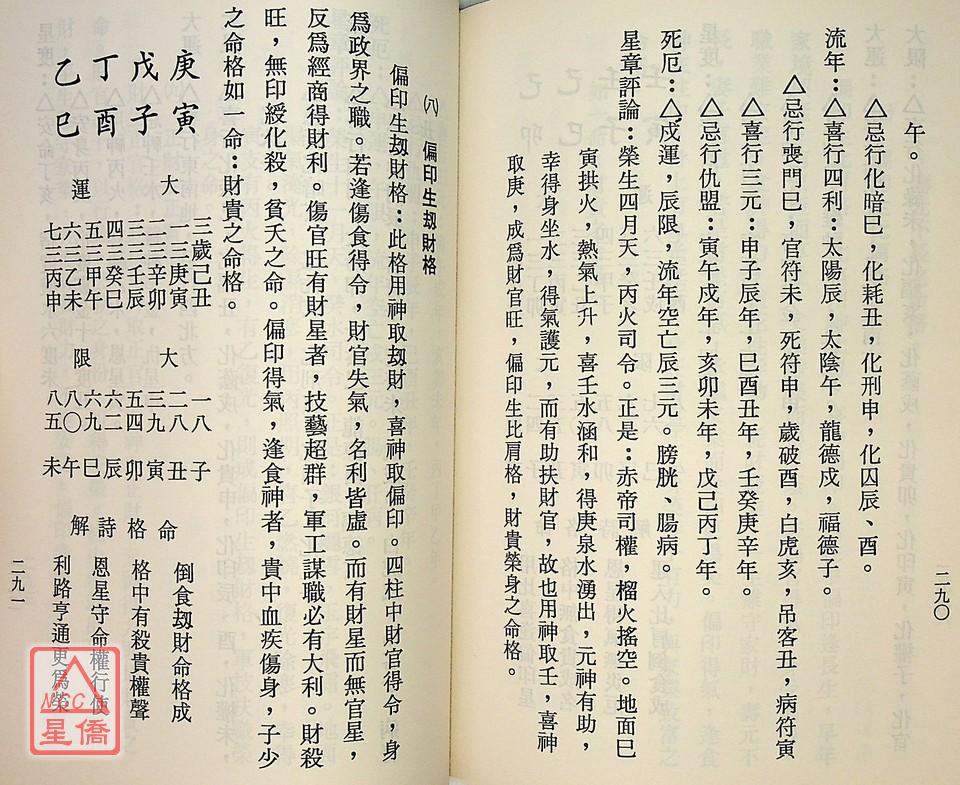 午。
△忌行化暗巳，化耗丑，化刑申，化囚辰、酉。
流年：△喜行四利：太陽辰，太陰午，龍德戌，福德子。
△忌行喪門巳，官符未，死符申，歲破酉，白虎亥，吊客丑，病符寅
△喜行三元：申子辰年，巳酉丑年，壬癸庚辛年。
△忌行仇盟：寅午戌年，亥卯未年，戊己丙丁年。
死厄：△戌運，辰限，流年空亡辰三元。膀胱、腸病。
星章評論：榮生四月天，丙火司令。正是：赤帝司權，榴火搖空。地面巳
寅拱火，熱氣上升，喜壬水涵和，得庚泉水湧出，元神有助，
幸得身坐水，得氣護元，而有助扶財官，故也用神取壬，喜神
取庚，成爲財官旺，偏印生比肩格，財貴榮身之命格。
二九〇
㈥ 偏印生刼財格
偏印生刼財格：此格用神取刼財，喜神取偏印。四柱中財官得令，身
爲政界之職。若逢傷食得令，財官失氣，名利皆虛。而有財星而無官星，
反爲經商得財利。傷官旺有財星者，技藝超群，軍工謀職必有大利。財殺
旺，無印綬化殺，貧夭之命。偏印得氣，逢食神者，貴中血疾傷身，子少
之命格如一命：財貴之命格。
庚寅
戊子
丁酉
乙巳
大運
三歲己丑
一三庚寅
二三辛卯
三三壬辰
四三癸巳
五三甲午
六三乙未
七三丙申
大限
一八子
二八丑
三九寅
五四卯
六二辰
六九巳
八〇午
八五未
命格詩解
倒食刼財命格成
格中有殺貴權聲
恩星守命權行使
利路亨通更爲榮
二九一
NCC
星僑